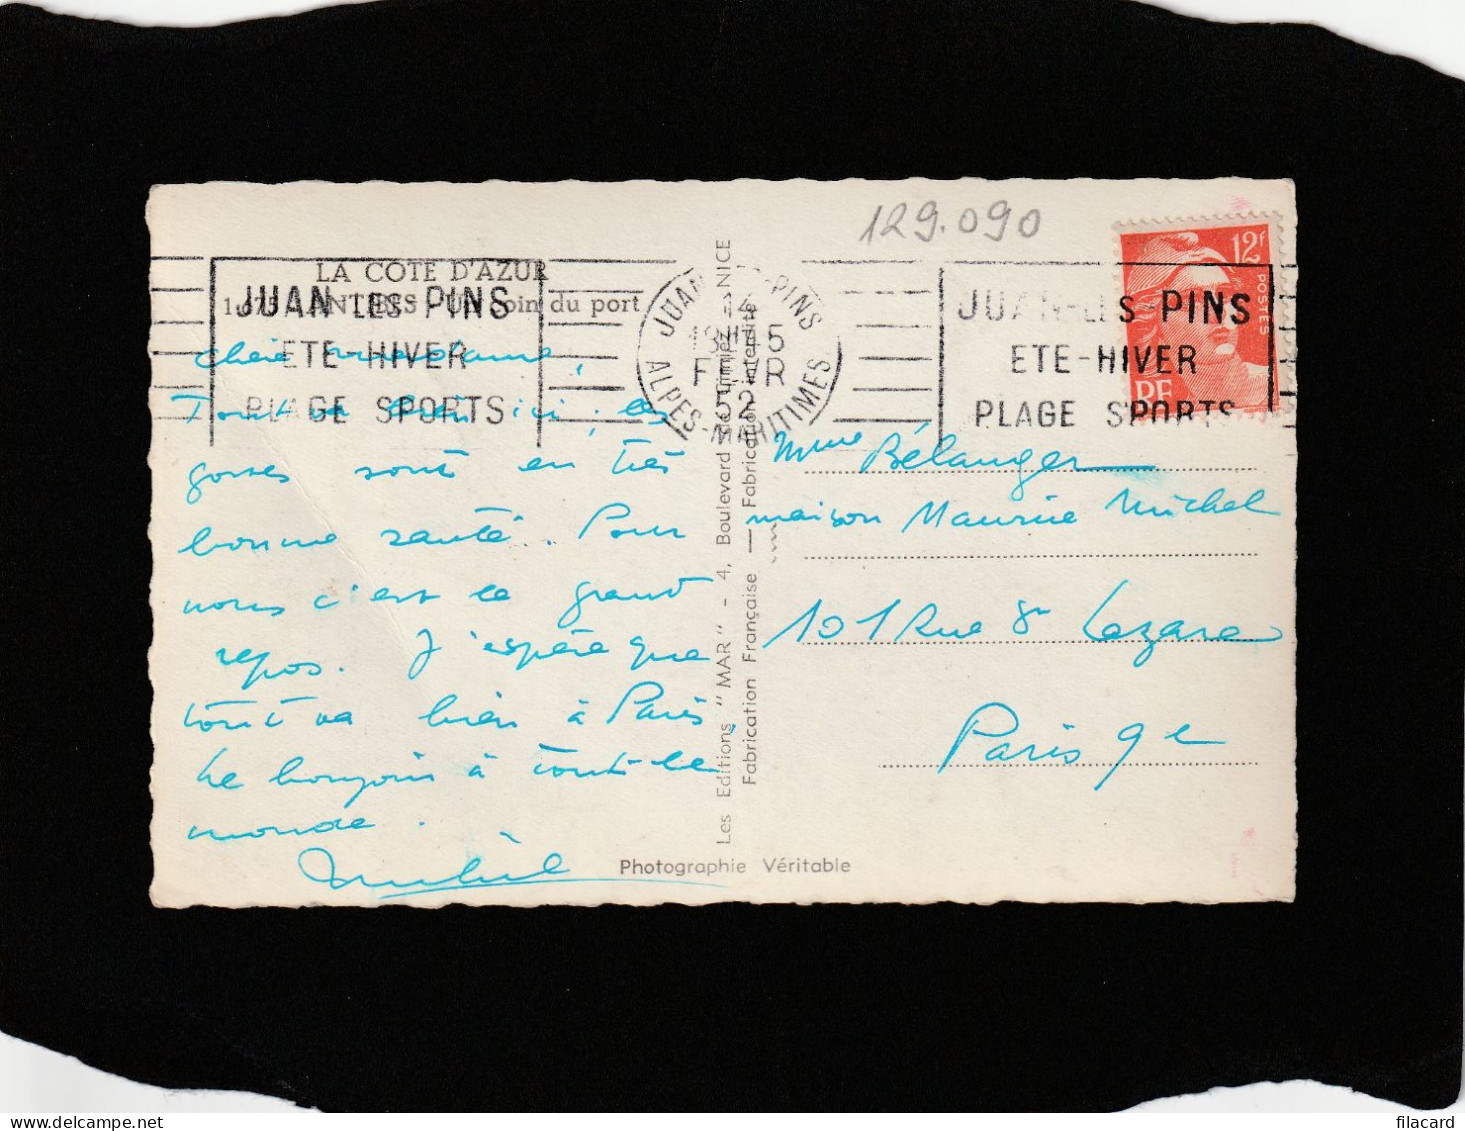 129.090
LA COTE D'AZUR
1.675 - ANTIBES - Un coin du port
JUAN LES PINS
ETE-HIVER
PLAGE SPORTS
JUAN-LES-PINS
14
FEVR
52
ALPES-MARITIMES
JUAN-LES-PINS
ETE-HIVER
PLAGE SPORTS
12f
POSTES
RF
chère madame,
Tout va bien ici, les
gosses sont en très
bonne santé. Pour
nous c'est le grand
repos. J'espère que
tout va bien à Paris,
Le bonjour à tout le
monde.
Michel
Les Editions "MAR" - 4, Boulevard de Cimiez - NICE
Fabrication Française — Fabrication interdite
Mme Bélanger
maison Maurice Michel
101 Rue St Lazare
Paris 9e
Photographie Véritable
filacard